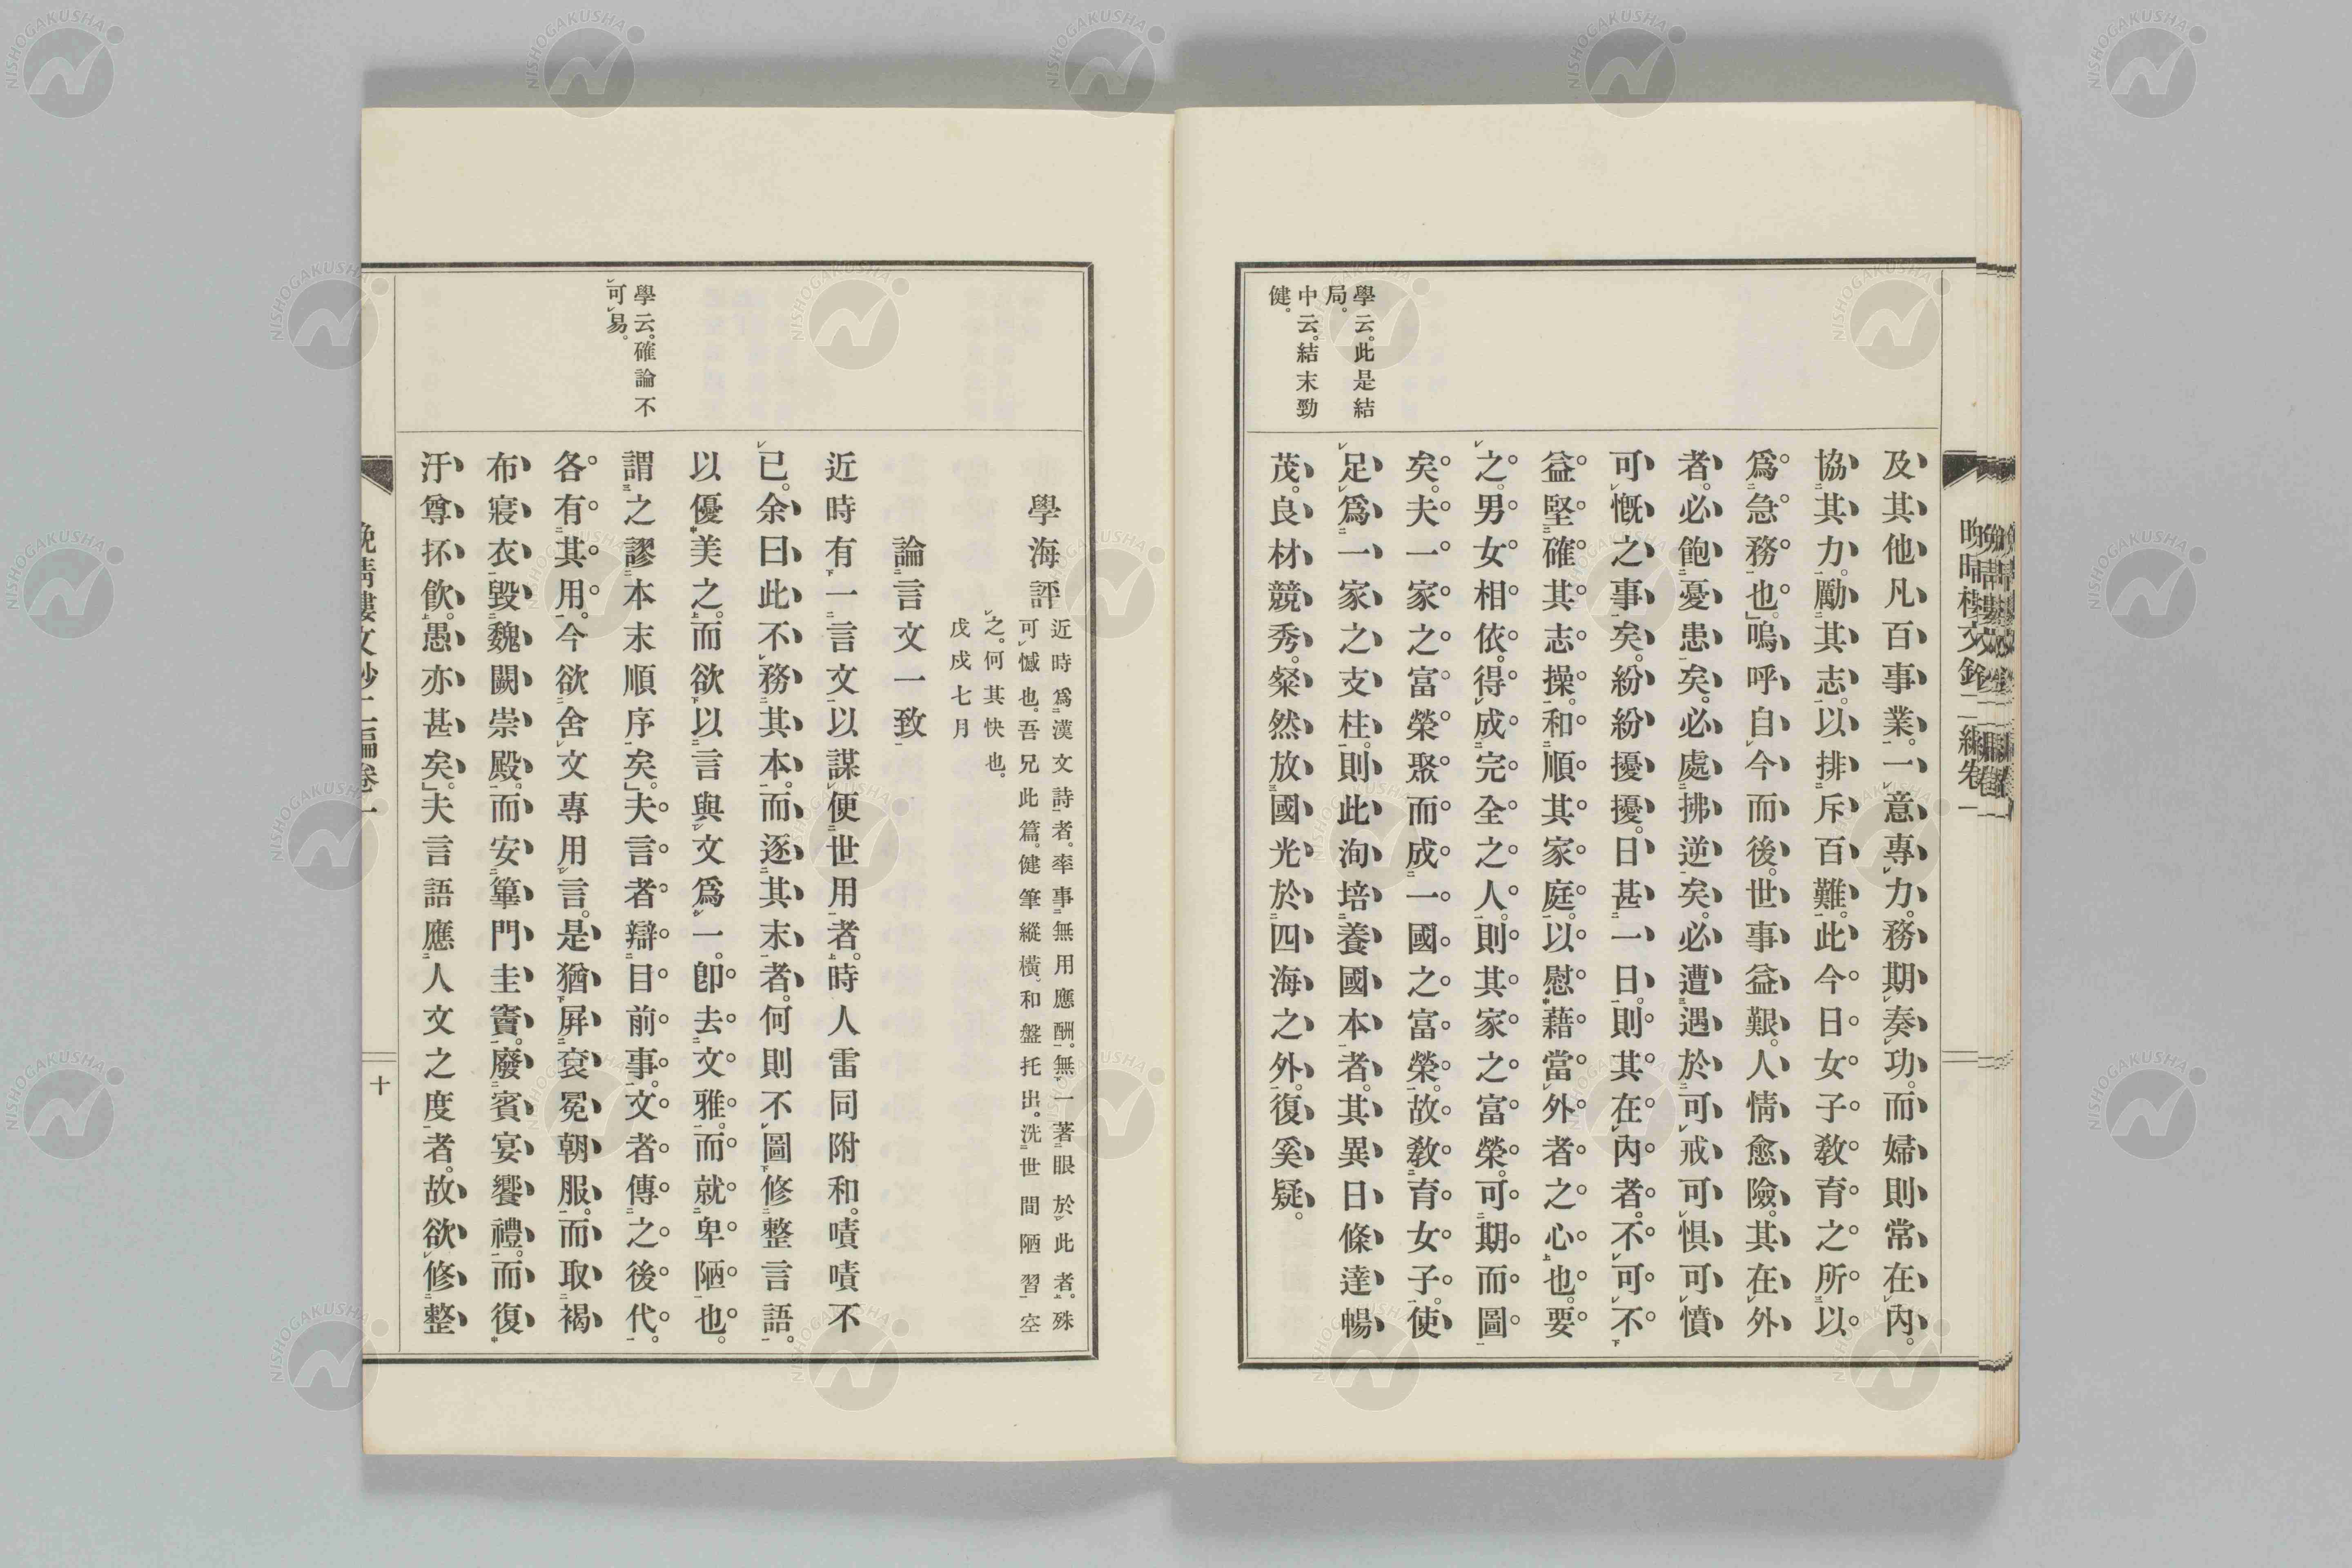 及其他凡百事業。一意專力。務期奏功。而婦則常在內。
協其力。勵其志。以排斥百難。此今日女子教育之所以
爲急務也。」嗚呼自今而後。世事益艱。人情愈險。其在外
者。必飽憂患矣。必處拂逆矣。必遭遇於可戒可惧可憤
可慨之事矣。紛紛擾擾。日甚一日。則其在內者。不可不
益堅確其志操。和順其家庭。以慰藉當外者之心也。要
之。男女相依。得成完全之人。則其家之富榮。可期而圖
矣。夫一家之富榮聚而成一國之富榮。故教育女子。使
足爲一家之支柱。則此洵培養國本者。其異日條達暢
茂。良材競秀。粲然放國光於四海之外。復奚疑。
學云。此是結
局。
中云。結末勁
健。
學海評
近時爲漢文詩者。率事無用應酬。無一著眼於此者。殊
可憾也。吾兄此篇。健筆縱橫。和盤托出。洗世間陋習一空
之。何其快也。
戊戌七月
論言文一致
近時有一言文以謀便世用者。時人雷同附和。嘖嘖不
已。余曰此不務其本。而逐其末者。何則不圖修整言語。
以優美之。而欲以言與文爲一。卽去文雅。而就卑陋也。
謂之謬本末順序矣。」夫言者辯目前事。文者傳之後代。
各有其用。今欲舍文專用言。是猶屛袞冕朝服。而取褐
布寢衣。毀魏闕崇殿。而安篳門圭竇。廢賓宴饗禮。而復
汙尊抔飮。愚亦甚矣。」夫言語應人文之度者。故欲修整
學云。確論不
可易。
晚晴樓文鈔二編卷一
十